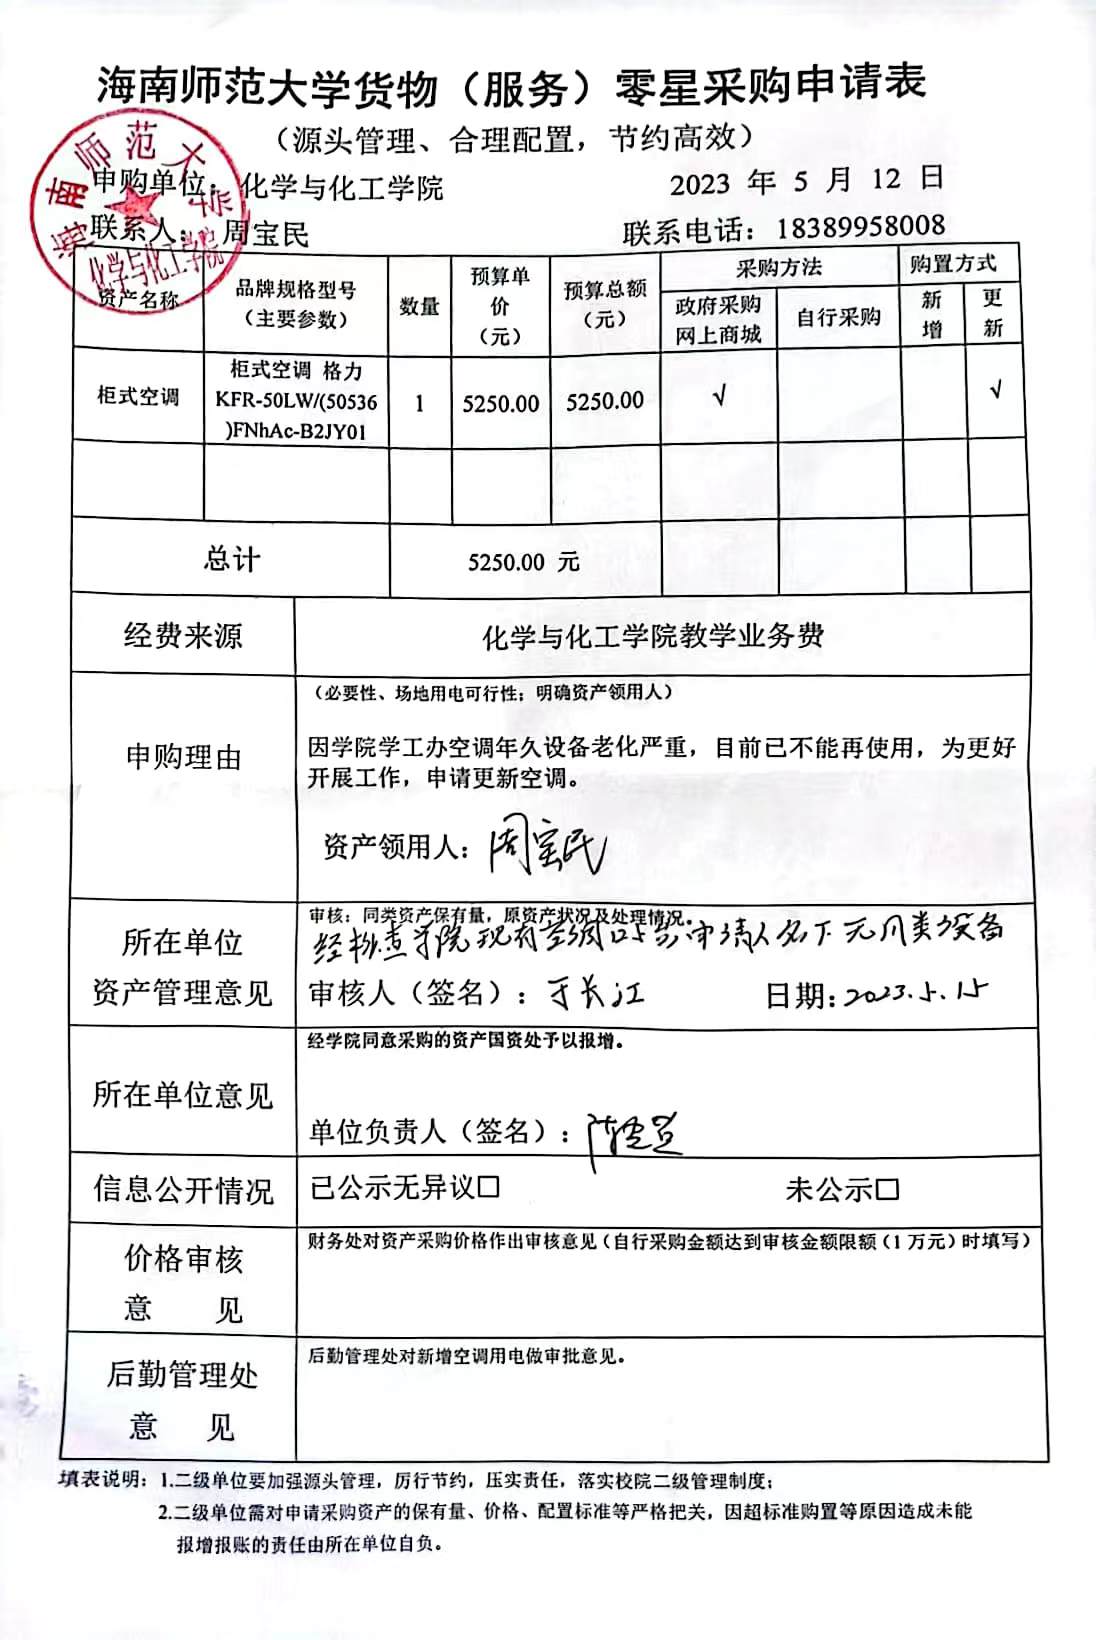 海南师范大学货物（服务）零星采购申请表
（源头管理、合理配置，节约高效）
海南师范大学
化学与化工学院
申购单位：化学与化工学院 2023 年 5 月 12 日
联系人：周宝民 联系电话：18389958008
资产名称 品牌规格型号（主要参数） 数量 预算单价（元） 预算总额（元） 采购方法 购置方式
政府采购网上商城 自行采购 新增 更新
柜式空调 柜式空调 格力 KFR-50LW/(50536)FNhAc-B2JY01 1 5250.00 5250.00 √ √
总计 5250.00 元
经费来源 化学与化工学院教学业务费
申购理由
（必要性、场地用电可行性；明确资产领用人）
因学院学工办空调年久设备老化严重，目前已不能再使用，为更好
开展工作，申请更新空调。
资产领用人：周宝民
所在单位
资产管理意见
审核：同类资产保有量，原资产状况及处理情况。
经核查学院现有空调 申请人名下无同类设备
审核人（签名）：于长江 日期：2023.5.15
所在单位意见
经学院同意采购的资产国资处予以报增。
单位负责人（签名）：
信息公开情况 已公示无异议□ 未公示□
价格审核
意 见
财务处对资产采购价格作出审核意见（自行采购金额达到审核金额限额（1 万元）时填写）
后勤管理处
意 见
后勤管理处对新增空调用电做审批意见。
填表说明：1.二级单位要加强源头管理，厉行节约，压实责任，落实校院二级管理制度；
2.二级单位需对申请采购资产的保有量、价格、配置标准等严格把关，因超标准购置等原因造成未能
报增报账的责任由所在单位自负。